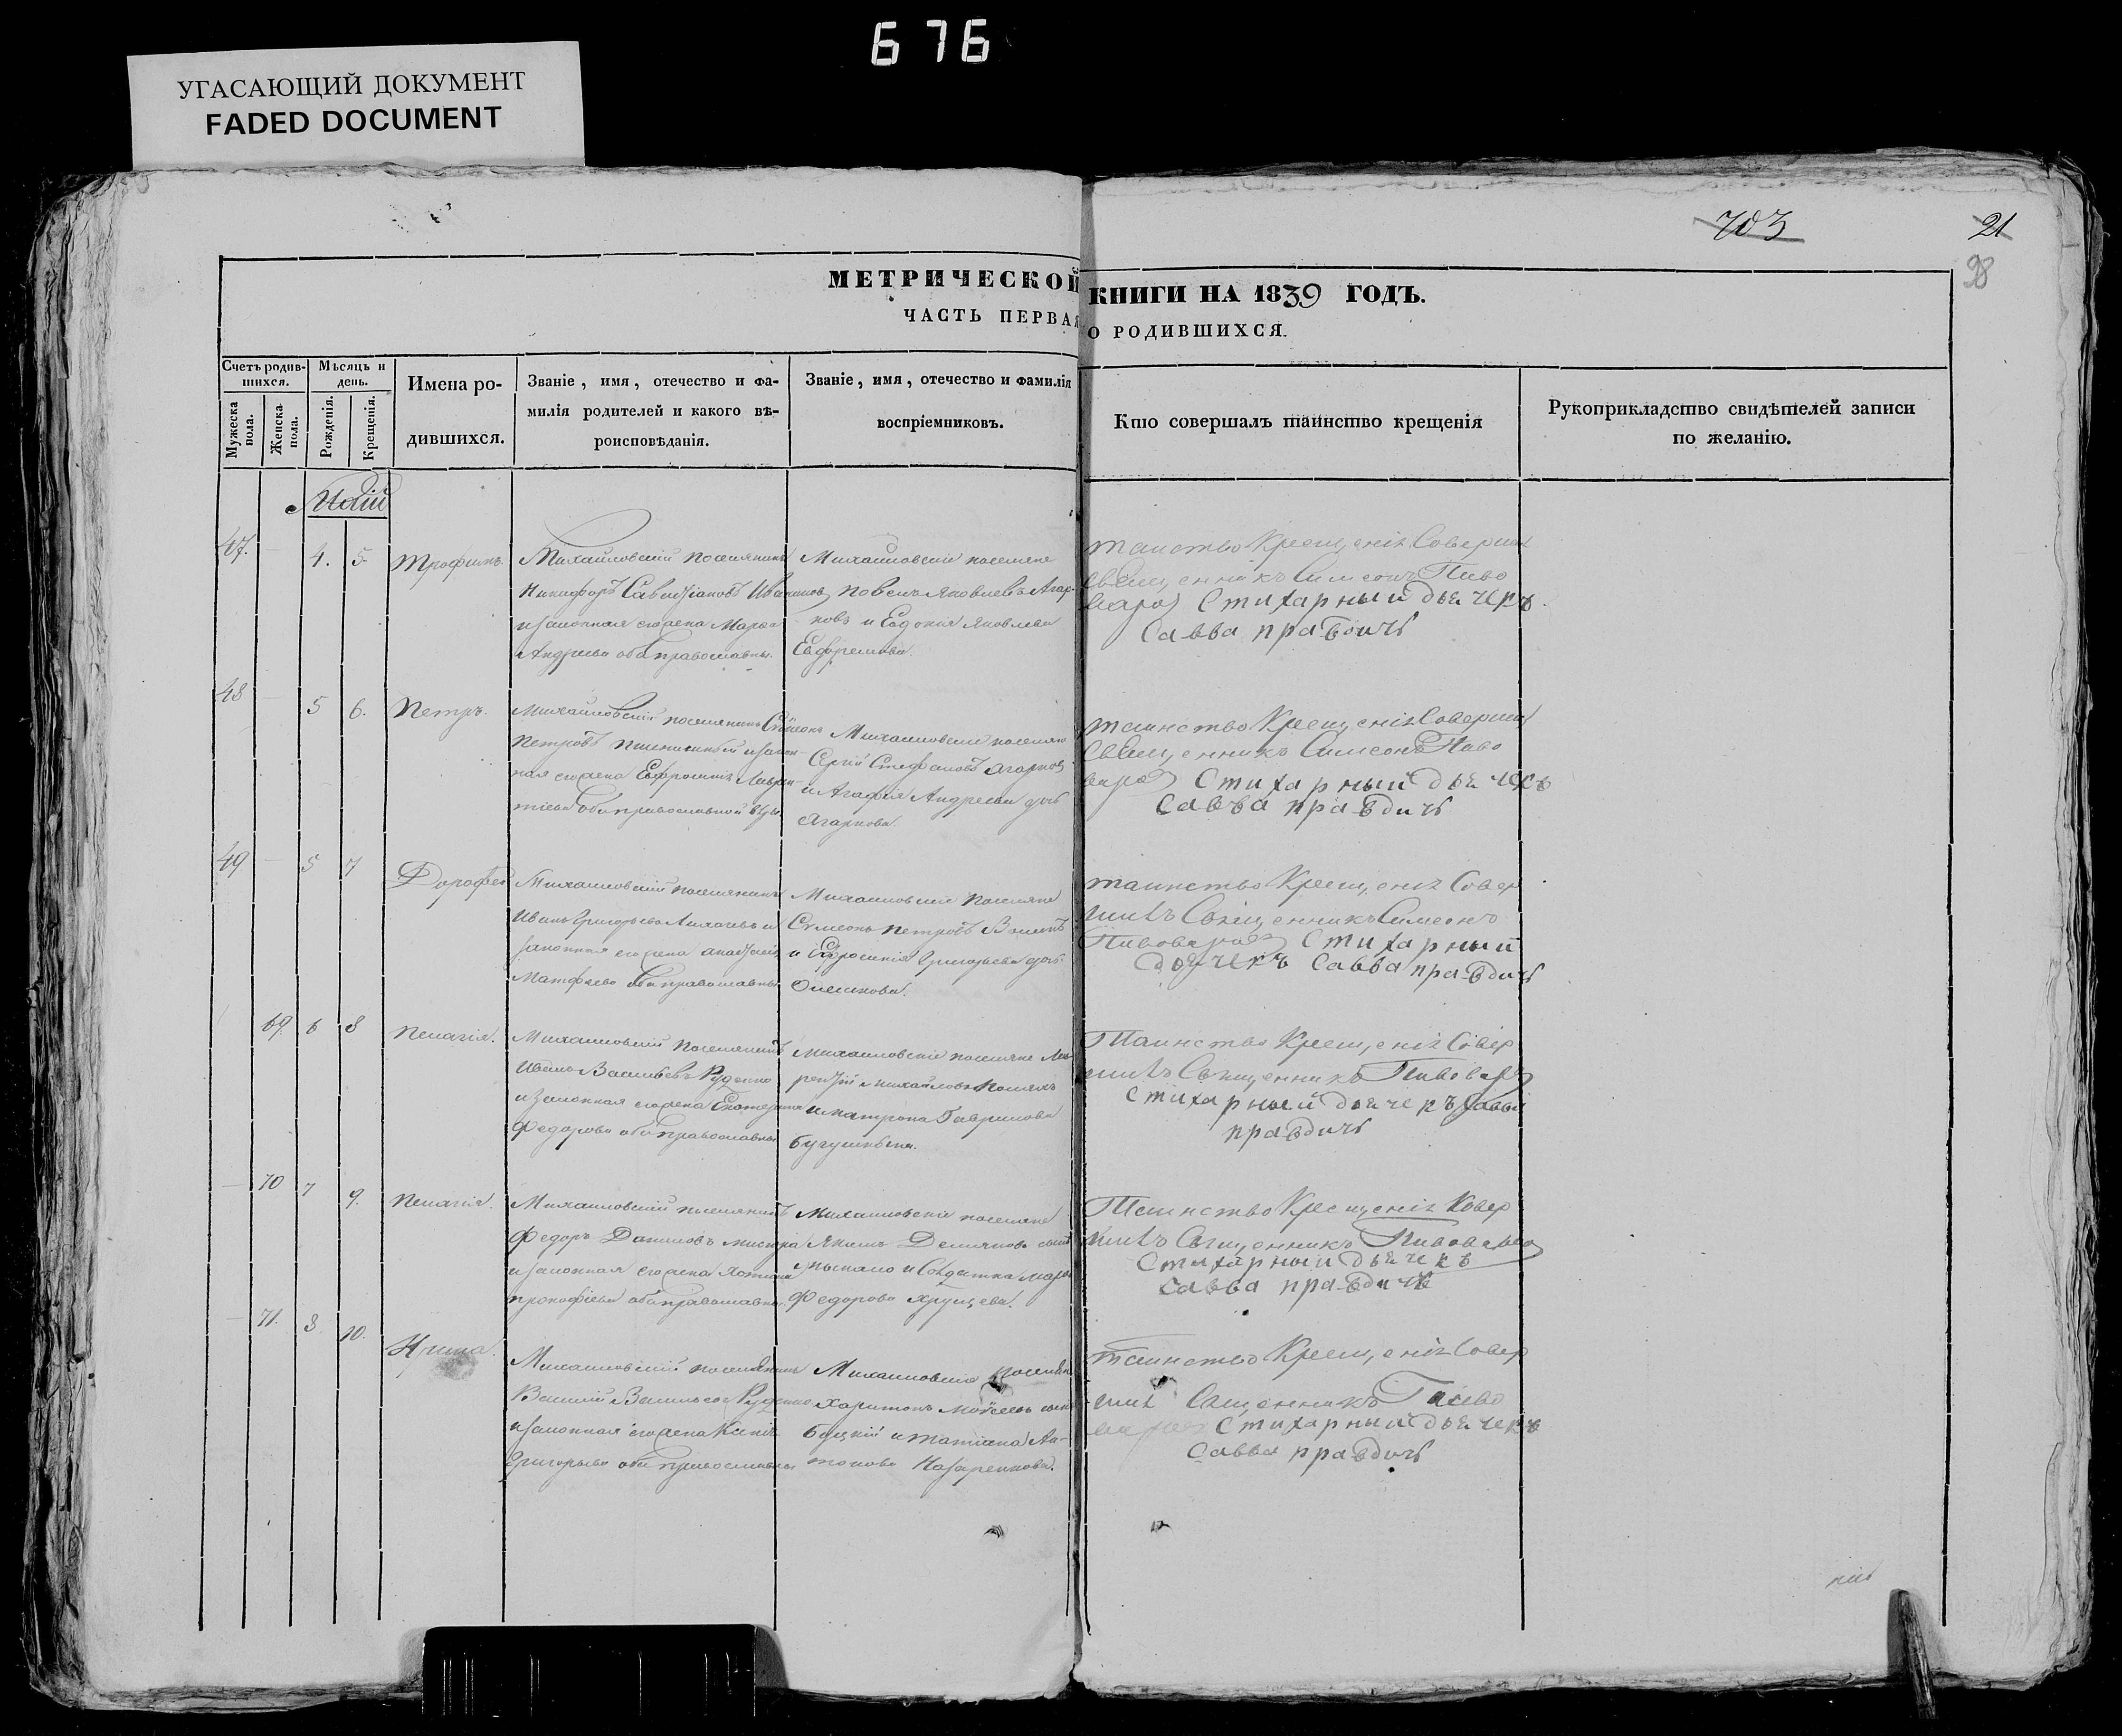 676
УГАСАЮЩИЙ ДОКУМЕНТ
FADED DOCUMENT
703
21
98
МЕТРИЧЕСКОЙ КНИГИ НА 1839 ГОДЪ.
ЧАСТЬ ПЕРВАЯ О РОДИВШИХСЯ.
Счетъ родив-
шихся.
Мужеска
пола.
Женска
пола.
Мѣсяцъ и
день.
Рожденія.
Крещенія.
Имена ро-
дившихся.
Званіе, имя, отечество и фа-
милія родителей и какого вѣ-
роисповѣданія.
Званіе, имя, отечество и фамилія
воспріемниковъ.
Кто совершалъ таинство крещенія
Рукоприкладство свидѣтелей записи
по желанію.
Маій
47.
4. 5
Трофимъ.
Михайловскій поселянинъ
Никифоръ
и законная его жена Марѳа
Андреева оба православны.
Михайловскіе поселяне
Павелъ Яковлевъ Агар-
ковъ и Евдокія Яковлева
Ефремова.
таинство Крещенія Совершил
священникъ Симеонъ Пиво
варов Стихарный дьячекъ
Савва правдичъ
48
5 6.
Петръ.
Михайловскій поселянинъ Симеонъ
Петровъ Пшеничный и закон-
ная его жена Евфросинія Лаврен-
тіева оба православной вѣры
Михайловскіе поселяне
Сергій Стефановъ Агарков
и Агафія Андреева дочь
Агаркова.
таинство Крещенія Совершил
священникъ Симеонъ Пиво
варов Стихарный дьячекъ
Савва правдичъ
49
5 7
Дорофей
Михайловскій поселянинъ
Иванъ Григорьевъ и
законная его жена Анастасія
Матфеева оба православны
Михайловскіе поселяне
Сѵмеонъ Петровъ
и Евфросинія Григорьева дочь
таинство Крещенія Совер
шилъ Священникъ Симеонъ
Пивоваров Стихарный
дьячекъ Савва правдичъ
69. 6 8
Пелагія.
Михайловскій поселянинъ
Иванъ Васильевъ Руденко
и законная его жена Екатерина
Федорова оба православны
Михайловскіе поселяне Лав-
рентій Михайловъ
и матрона Гаврилова
Таинство Крещенія Совер
шилъ Священникъ Пивовар
Стихарный дьячекъ Савва
правдичъ
70 7 9.
Пелагія.
Михайловскій поселянинъ
Федоръ Даниловъ
и законная его жена
Прокофіева оба православны.
Михайловскіе поселяне
Якимъ Демяновъ сынъ
и Солдатка
Федорова Хрущева.
Таинство Крещенія Совер
шилъ Священникъ Пивоваров
Стихарный дьячекъ
Савва правдичъ
71. 8 10.
Ирина.
Михайловскій поселянинъ
Василій Васильевъ Руденко
и законная его жена
Григорьева оба православны
Михайловскіе поселяне
Харитонъ Моѵсеевъ сынъ
и Татіана Ан-
тонова Назаренкова.
таинство Крещенія Совер
шил Священникъ Пиво
варов Стихарный дьячекъ
Савва правдичъ